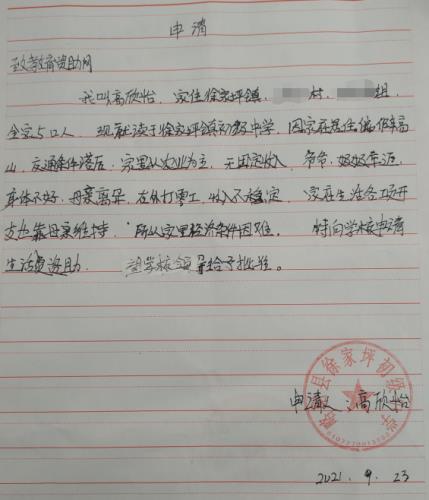 申请
致教育资助网
我叫高欣怡,家住徐家坪镇,村,组,
全家5口人,现就读于徐家坪镇初级中学,因家在居住偏僻高
山,交通条件落后,家里以农业为主,无固定收入,爷爷,奶奶年迈,
身体不好,母亲离异,在外打零工,收入不稳定,家在生活各项开
支也靠母亲维持,所以家里经济条件困难。特向学校申请
生活费资助,望学校领导给予批准。
县徐家坪初级中学
申请人:高欣怡
2021.9.23